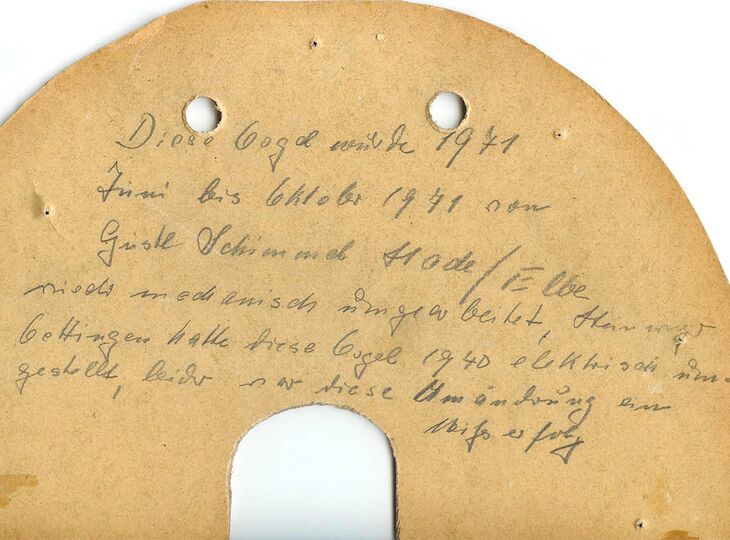 Diese Orgel wurde 1971
Juni bis Oktober 1971 von
Gustl Schimmel Stade/Elbe
wieder mechanisch umgearbeitet,
Göttingen hatte diese Orgel 1940 elektrisch um-
gestellt, leider war diese Umändrung ein
Mißerfolg